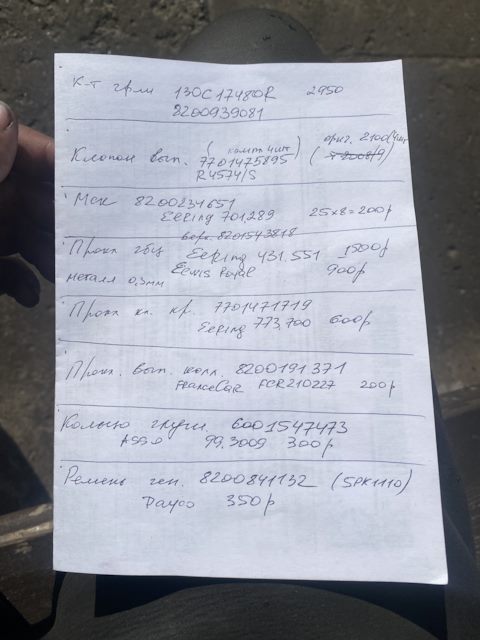 К-т грм 130C17480R 2950
8200939081
Клапан вып. (компл 4шт) (ориг. 2100/4шт
7701475895
R4574/S
Мск 8200234651
Eering 701.289 25x8=200р
верх. 8201543818
Прокл гбц Eering 431.551 1500р
металл 0,3мм Elwis Royal 900р
Прокл кл. кр. 7701471719
Eering 773.700 600р
Прокл. вып. колл. 8200191371
FranceCar FCR210227 200р
Кольцо глуш. 6001547473
ASSO 99.3009 300р
Ремень ген. 8200841132 (5PK1110)
Dayco 350р